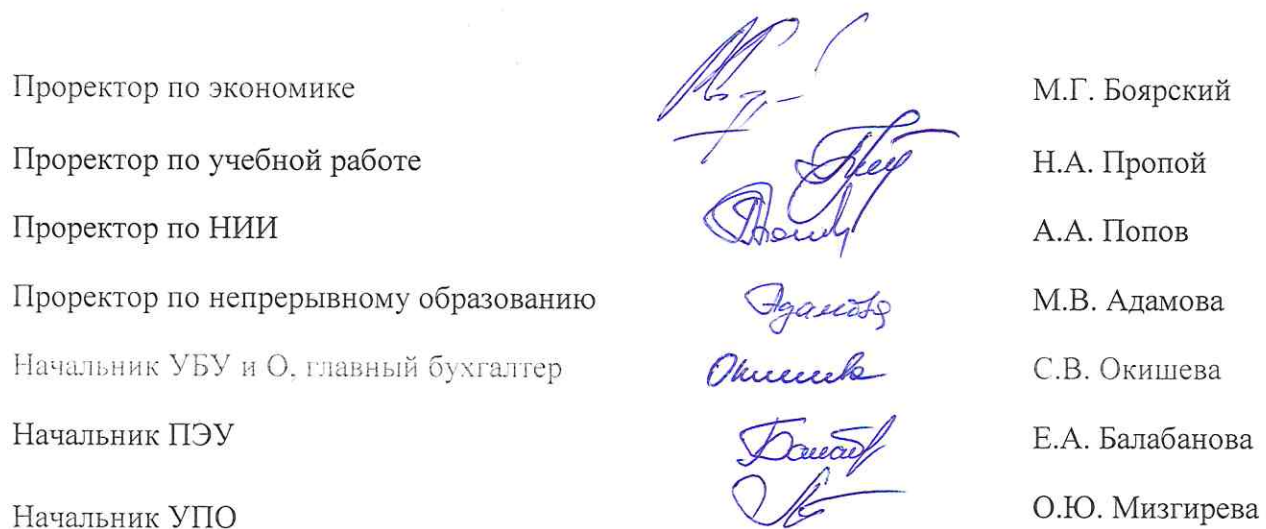 Проректор по экономике М.Г. Боярский
Проректор по учебной работе Н.А. Пропой
Проректор по НИИ А.А. Попов
Проректор по непрерывному образованию Адамова М.В. Адамова
Начальник УБУ и О, главный бухгалтер Окишева С.В. Окишева
Начальник ПЭУ Е.А. Балабанова
Начальник УПО О.Ю. Мизгирева